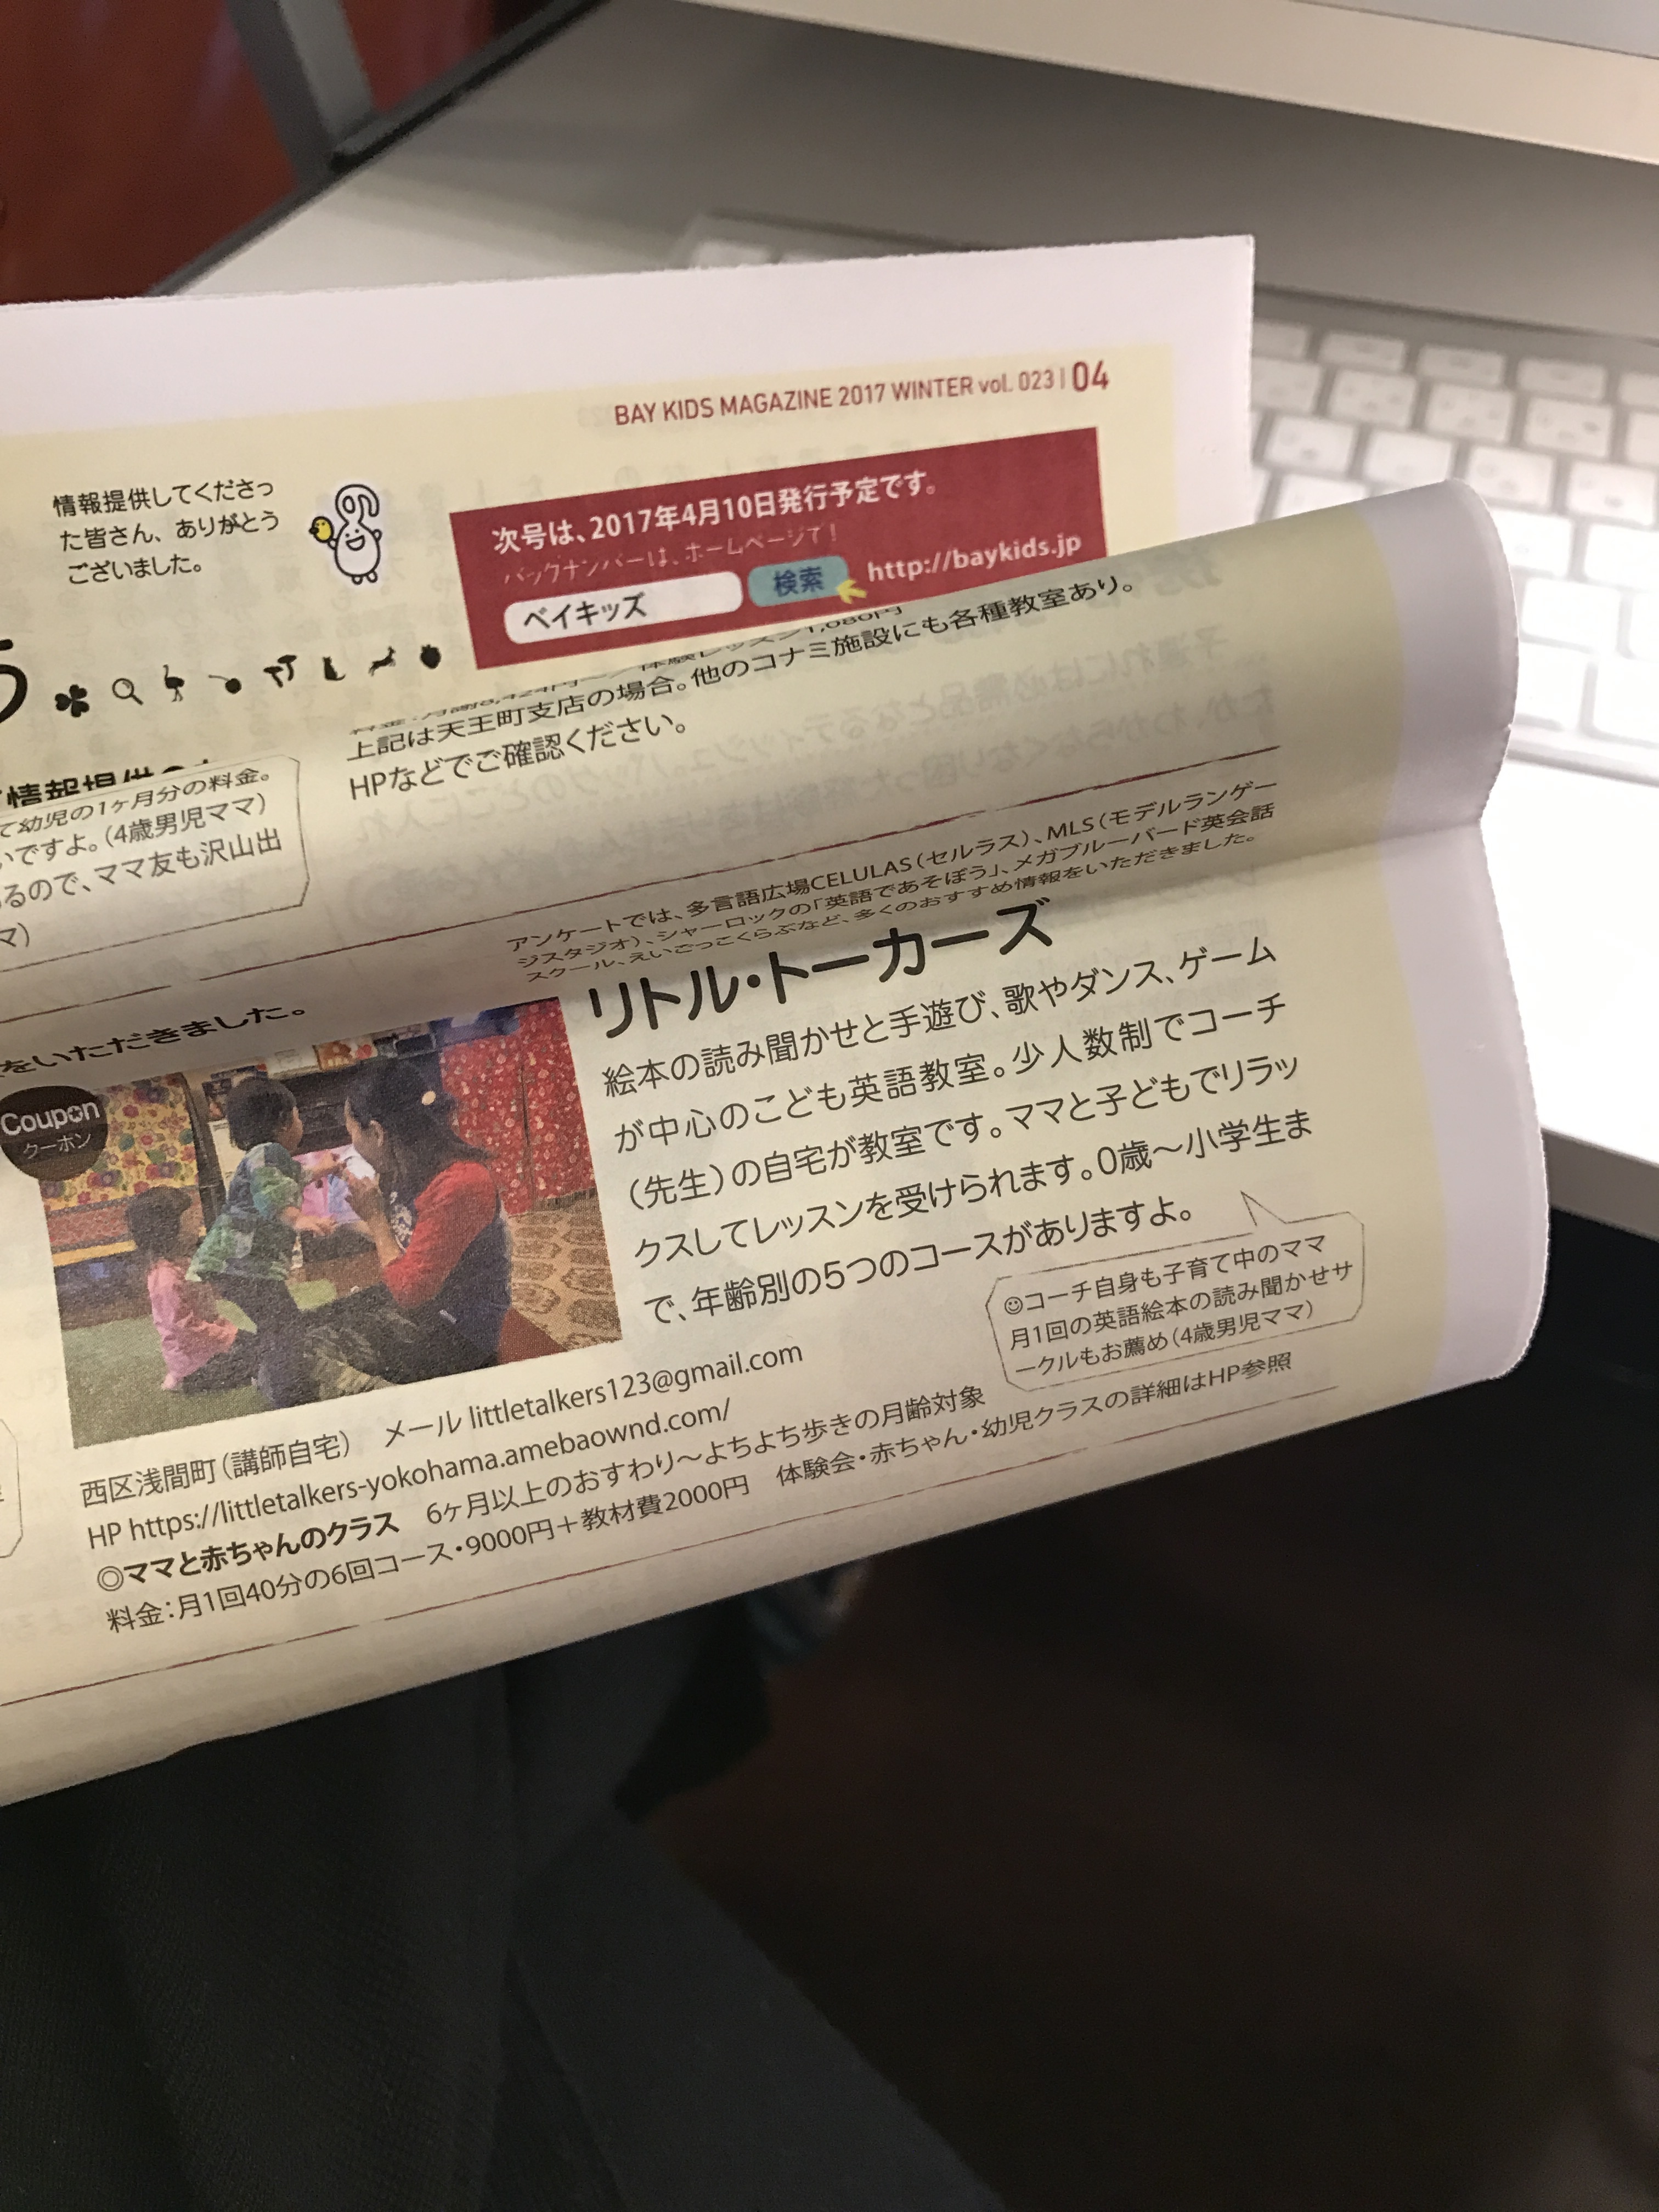 BAY KIDS MAGAZINE 2017 WINTER vol. 023 | 04
情報提供してくださっ
た皆さん、ありがとう
ございました。
次号は、2017年4月10日発行予定です。
バックナンバーは、ホームページで!
ベイキッズ 検索 http://baykids.jp
上記は天王町支店の場合。他のコナミ施設にも各種教室あり。
HPなどでご確認ください。
て幼児の1ヶ月分の料金。
いですよ。(4歳男児ママ)
るので、ママ友も沢山出
マ)
アンケートでは、多言語広場CELULAS(セルラス)、MLS(モデルランゲー
ジスタジオ)、シャーロックの「英語であそぼう」、メガブルーバード英会話
スクール、えいごっこくらぶなど、多くのおすすめ情報をいただきました。
をいただきました。
Coupon
クーポン
リトル・トーカーズ
絵本の読み聞かせと手遊び、歌やダンス、ゲーム
が中心のこども英語教室。少人数制でコーチ
(先生)の自宅が教室です。ママと子どもでリラッ
クスしてレッスンを受けられます。0歳〜小学生ま
で、年齢別の5つのコースがありますよ。
コーチ自身も子育て中のママ
月1回の英語絵本の読み聞かせサ
ークルもお薦め(4歳男児ママ)
西区浅間町(講師自宅) メール littletalkers123@gmail.com
HP https://littletalkers-yokohama.amebaownd.com/
◎ママと赤ちゃんのクラス 6ヶ月以上のおすわり〜よちよち歩きの月齢対象
料金:月1回40分の6回コース・9000円+教材費2000円 体験会・赤ちゃん・幼児クラスの詳細はHP参照